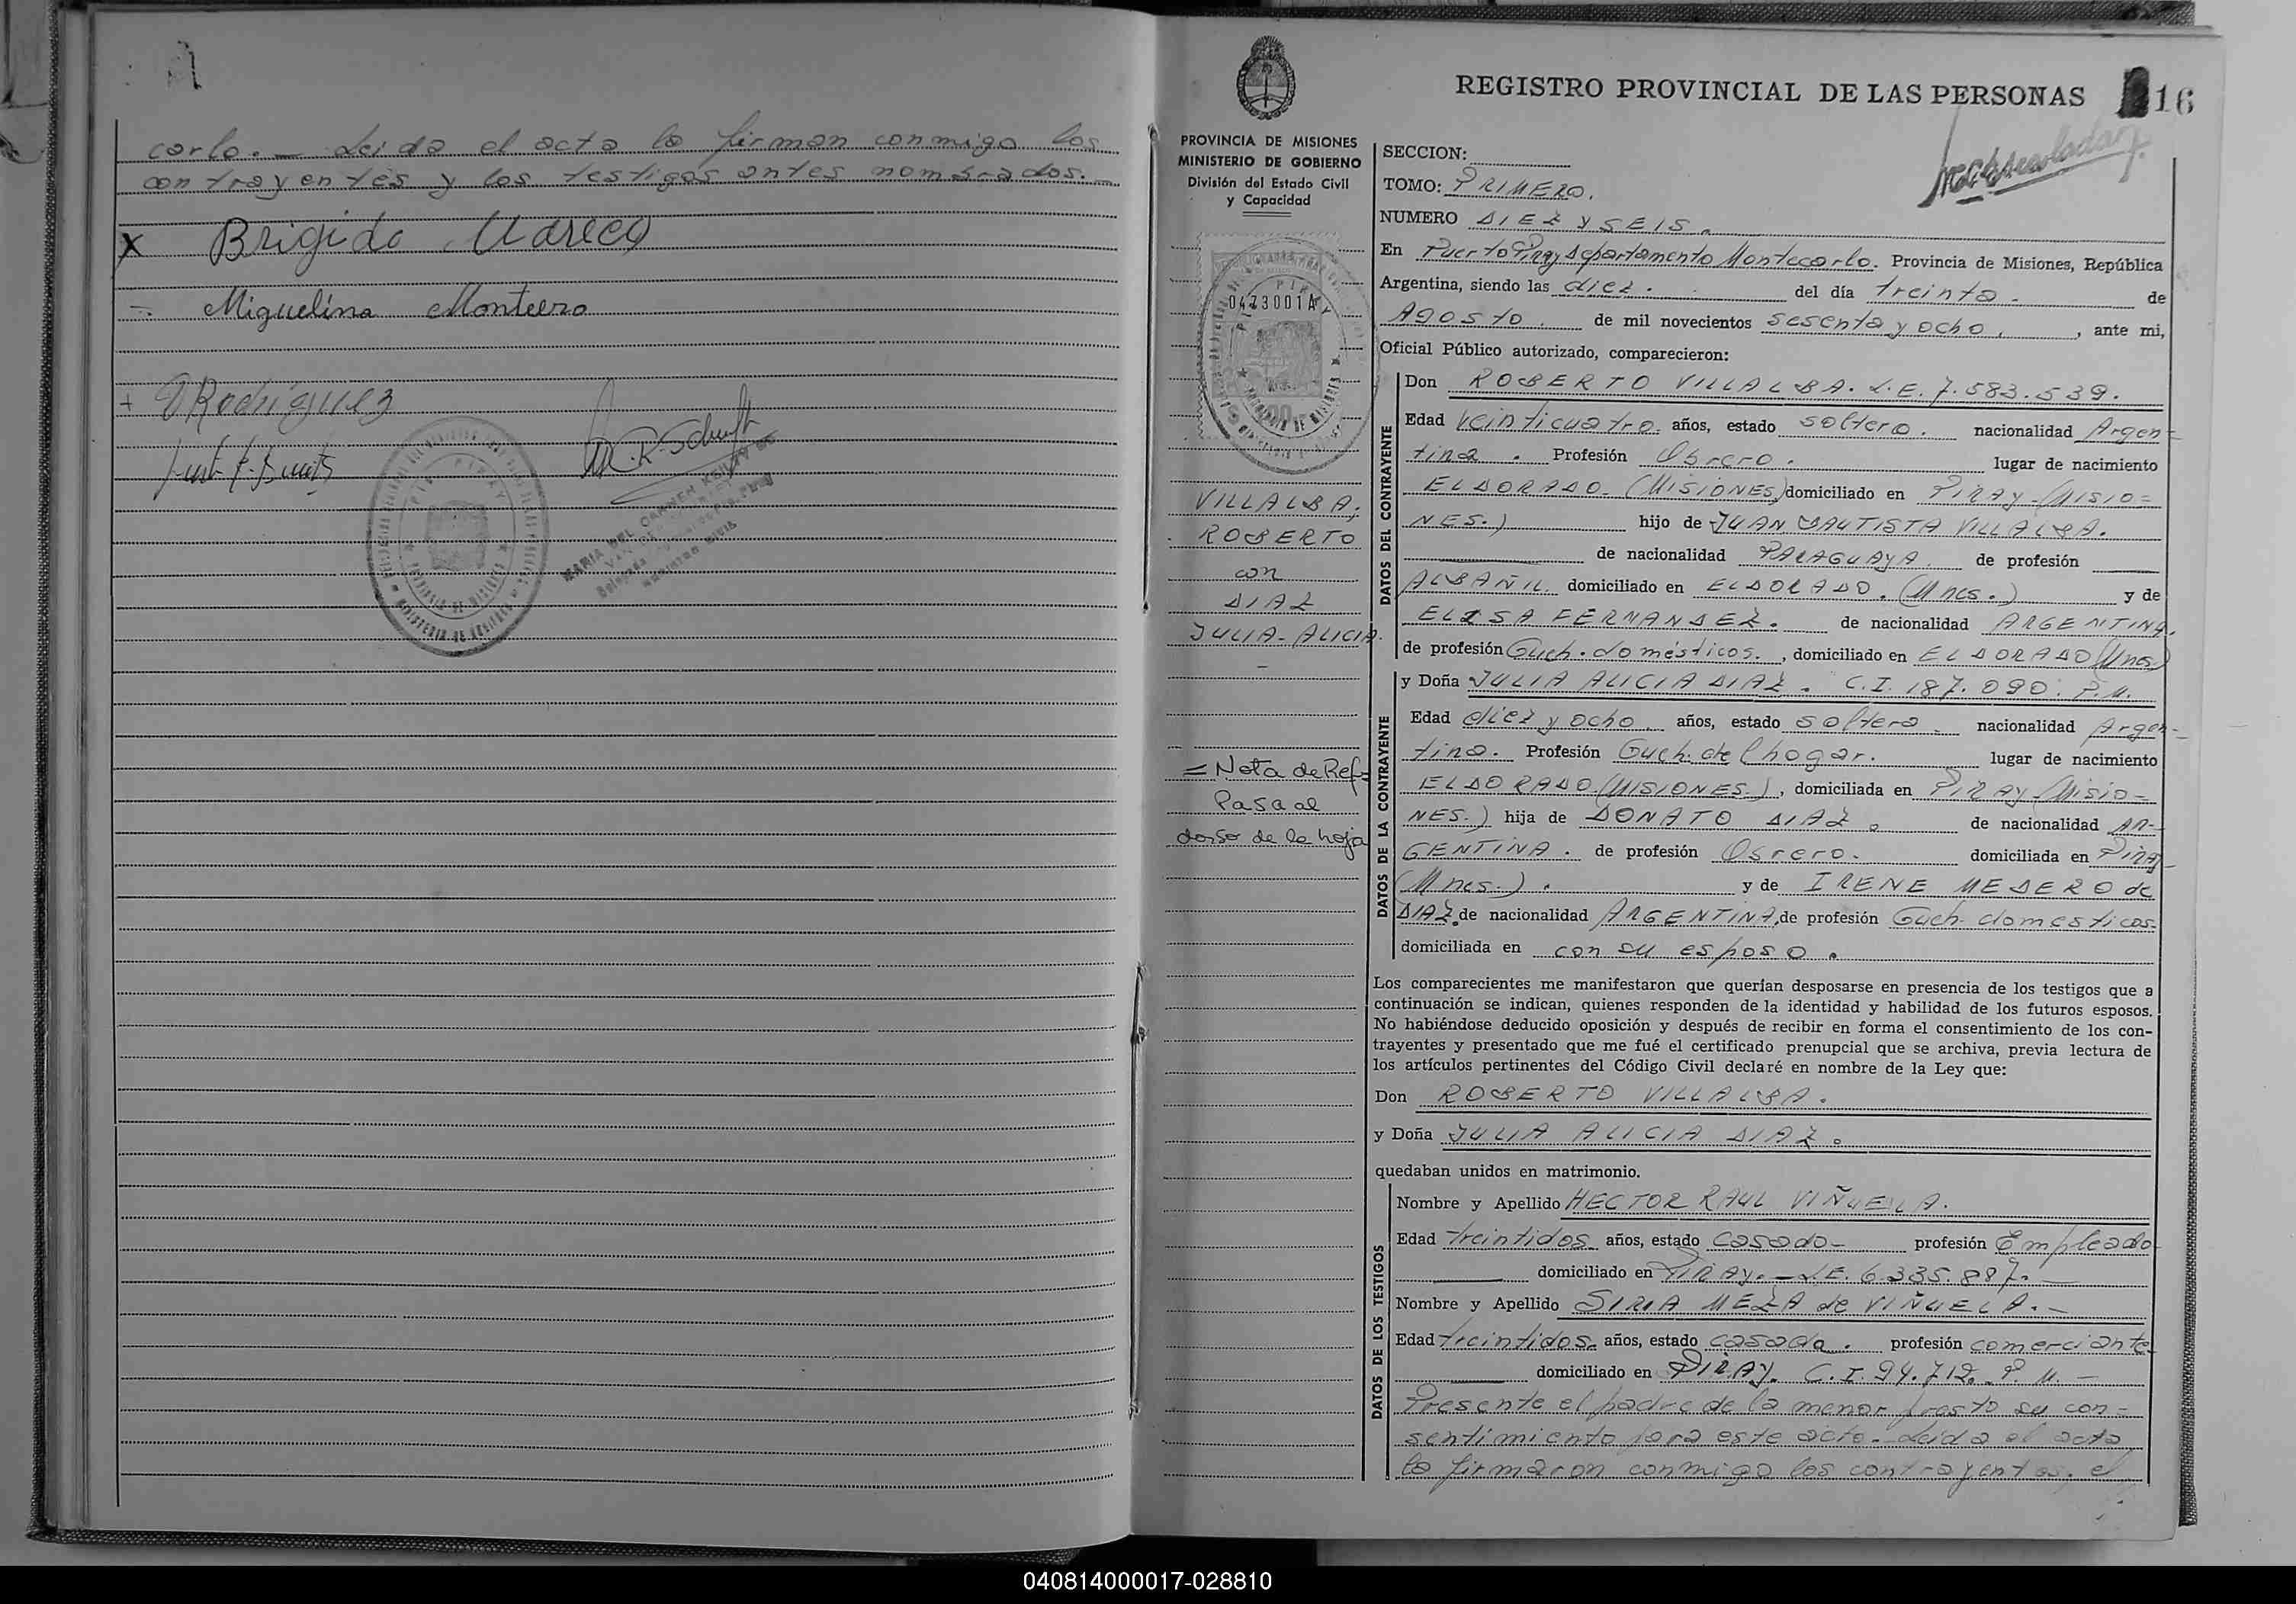 carlo. — Leida el acta la firman conmigo los
contrayentes y los testigos antes nombrados. —
X Brigido Mareco
Miguelina Monteero
Rodriguez
M. R. Schuft
MARIA DEL CARMEN
REGISTRO PROVINCIAL DE LAS PERSONAS 16
PROVINCIA DE MISIONES
MINISTERIO DE GOBIERNO
División del Estado Civil
y Capacidad
0473001A
VILLALBA,
ROBERTO
con
DIAZ
JULIA-ALICIA.
—
= Nota de Ref=
Pasa al
dorso de la hoja
SECCION:
TOMO: PRIMERO.
NUMERO DIEZ Y SEIS.
En Puerto Piray Departamento Montecarlo. Provincia de Misiones, República
Argentina, siendo las diez. del día treinta. de
Agosto. de mil novecientos sesenta y ocho. , ante mi,
Oficial Público autorizado, comparecieron:
DATOS DEL CONTRAYENTE
Don ROBERTO VILLALBA. L.E. 7.583.539.
Edad veinticuatro. años, estado soltero. nacionalidad Argen=
tina. Profesión Obrero. lugar de nacimiento
ELDORADO. (MISIONES) domiciliado en PIRAY-(MISIO=
NES.) hijo de JUAN BAUTISTA VILLALBA.
de nacionalidad PARAGUAYA. de profesión
ALBAÑIL. domiciliado en ELDORADO. (Mnes.) y de
ELISA FERNANDEZ. de nacionalidad ARGENTINA.
de profesión Queh. domésticos. , domiciliado en ELDORADO (Mnes.)
DATOS DE LA CONTRAYENTE
y Doña JULIA ALICIA DIAZ. C.I. 187.090. P.M.
Edad diez y ocho años, estado soltera. nacionalidad Argen-
tina. Profesión Queh. del hogar. lugar de nacimiento
ELDORADO. (MISIONES) , domiciliada en PIRAY (MISIO-
NES.) hija de DONATO DIAZ. de nacionalidad AR-
GENTINA. de profesión Obrero. domiciliada en PIRAY
(Mnes.). y de IRENE MEDERO de
DIAZ. de nacionalidad ARGENTINA, de profesión Queh. domesticos.
domiciliada en con su esposo.
Los comparecientes me manifestaron que querían desposarse en presencia de los testigos que a
continuación se indican, quienes responden de la identidad y habilidad de los futuros esposos.
No habiéndose deducido oposición y después de recibir en forma el consentimiento de los con-
trayentes y presentado que me fué el certificado prenupcial que se archiva, previa lectura de
los artículos pertinentes del Código Civil declaré en nombre de la Ley que:
Don ROBERTO VILLALBA.
y Doña JULIA ALICIA DIAZ.
quedaban unidos en matrimonio.
DATOS DE LOS TESTIGOS
Nombre y Apellido HECTOR RAUL VIÑUELA.
Edad treintidos años, estado casado- profesión Empleado
domiciliado en PIRAY. — L.E. 6.335.887. —
Nombre y Apellido SIRIA MEZA de VIÑUELA. —
Edad treintidos. años, estado casada. profesión comerciante
domiciliado en PIRAY. C.I. 94.712. P. M. —
Presente el padre de la menor presto su con=
sentimiento para este acto. Leida el acta
la firmaron conmigo los contrayentes, el
040814000017-028810